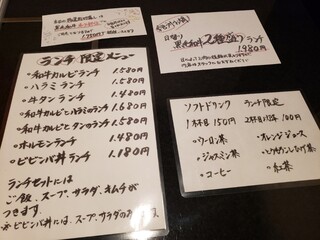 ランチ限定メニュー
・和牛カルビランチ 1.580円
・ハラミランチ 1.580円
・牛タンランチ 1.480円
・和牛カルビとハラミのランチ 1.680円
・和牛カルビとタンのランチ 1.580円
・ホルモンランチ 1.480円
・ビビンバ丼ランチ 1.180円
ランチセットには
ご飯、スープ、サラダ、キムチが
つきます。
ビビンバ丼には、スープ、サラダの
日替り
黒毛和牛2種盛りランチ
1.980円
ソフトドリンク ランチ限定
1杯目150円 2杯目以降100円
・ウーロン茶 ・オレンジジュース
・ジャスミン茶
・コーヒー ・紅茶